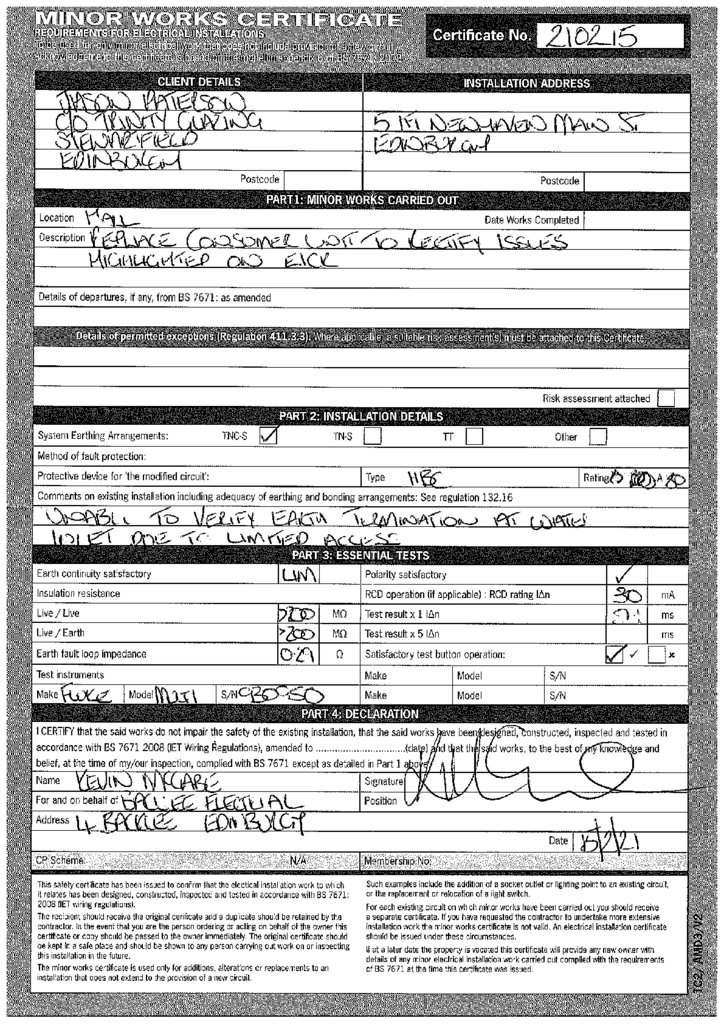 MINOR WORKS CERTIFICATE
REQUIREMENTS FOR ELECTRICAL INSTALLATIONS
Certificate No. 210215
CLIENT DETAILS
INSTALLATION ADDRESS
JASON PATERSON
C/O TRINITY GLAZING
5 1F1 NEWHAVEN MAIN ST
STEWARFIELD
EDINBURGH
EDINBURGH
Postcode
Postcode
PART1: MINOR WORKS CARRIED OUT
Location HALL
Date Works Completed
Description REPLACE CONSUMER UNIT TO RECTIFY ISSUES
HIGHLIGHTED ON EICR
Details of departures, if any, from BS 7671: as amended
Details of permitted exceptions (Regulation 411.3.3). Where applicable, a suitable risk assessment(s) must be attached to this Certificate
Risk assessment attached
PART 2: INSTALLATION DETAILS
System Earthing Arrangements: TNC-S ✓ TN-S TT Other
Method of fault protection:
Protective device for 'the modified circuit': Type Rating A 80
Comments on existing installation including adequacy of earthing and bonding arrangements: See regulation 132.16
UNABLE TO VERIFY EARTH TERMINATION AT WATER
INLET DUE TO LIMITED ACCESS
PART 3: ESSENTIAL TESTS
Earth continuity satisfactory LIM Polarity satisfactory ✓
Insulation resistance RCD operation (if applicable) : RCD rating IΔn 30 mA
Live / Live >200 MΩ Test result x 1 IΔn ms
Live / Earth >200 MΩ Test result x 5 IΔn ms
Earth fault loop impedance 0.29 Ω Satisfactory test button operation: ✓ ✓ ×
Test instruments Make Model S/N
Make FLUKE Model MULTI S/N Make Model S/N
PART 4: DECLARATION
I CERTIFY that the said works do not impair the safety of the existing installation, that the said works have been designed, constructed, inspected and tested in
accordance with BS 7671 2008 (IET Wiring Regulations), amended to ..............................(date) and that the said works, to the best of my knowledge and
belief, at the time of my/our inspection, complied with BS 7671 except as detailed in Part 1 above
Name KEVIN MCCABE Signature
For and on behalf of Position
Address 4 EDINBURGH
Date 15/2/21
CP Scheme: N/A Membership No:
This safety certificate has been issued to confirm that the electrical installation work to which
it relates has been designed, constructed, inspected and tested in accordance with BS 7671:
2008 (IET wiring regulations).
The recipient should receive the original certificate and a duplicate should be retained by the
contractor. In the event that you are the person ordering or acting on behalf of the owner this
certificate or copy should be passed to the owner immediately. The original certificate should
be kept in a safe place and should be shown to any person carrying out work on or inspecting
this installation in the future.
The minor works certificate is used only for additions, alterations or replacements to an
installation that does not extend to the provision of a new circuit.
Such examples include the addition of a socket outlet or lighting point to an existing circuit,
or the replacement or relocation of a light switch.
For each existing circuit on which minor works have been carried out you should receive
a separate certificate. If you have requested the contractor to undertake more extensive
installation work the minor works certificate is not valid. An electrical installation certificate
should be issued under these circumstances.
If at a later date the property is vacated this certificate will provide any new owner with
details of any minor electrical installation work carried out complied with the requirements
of BS 7671 at the time this certificate was issued.
TC2, AMD3 /V2